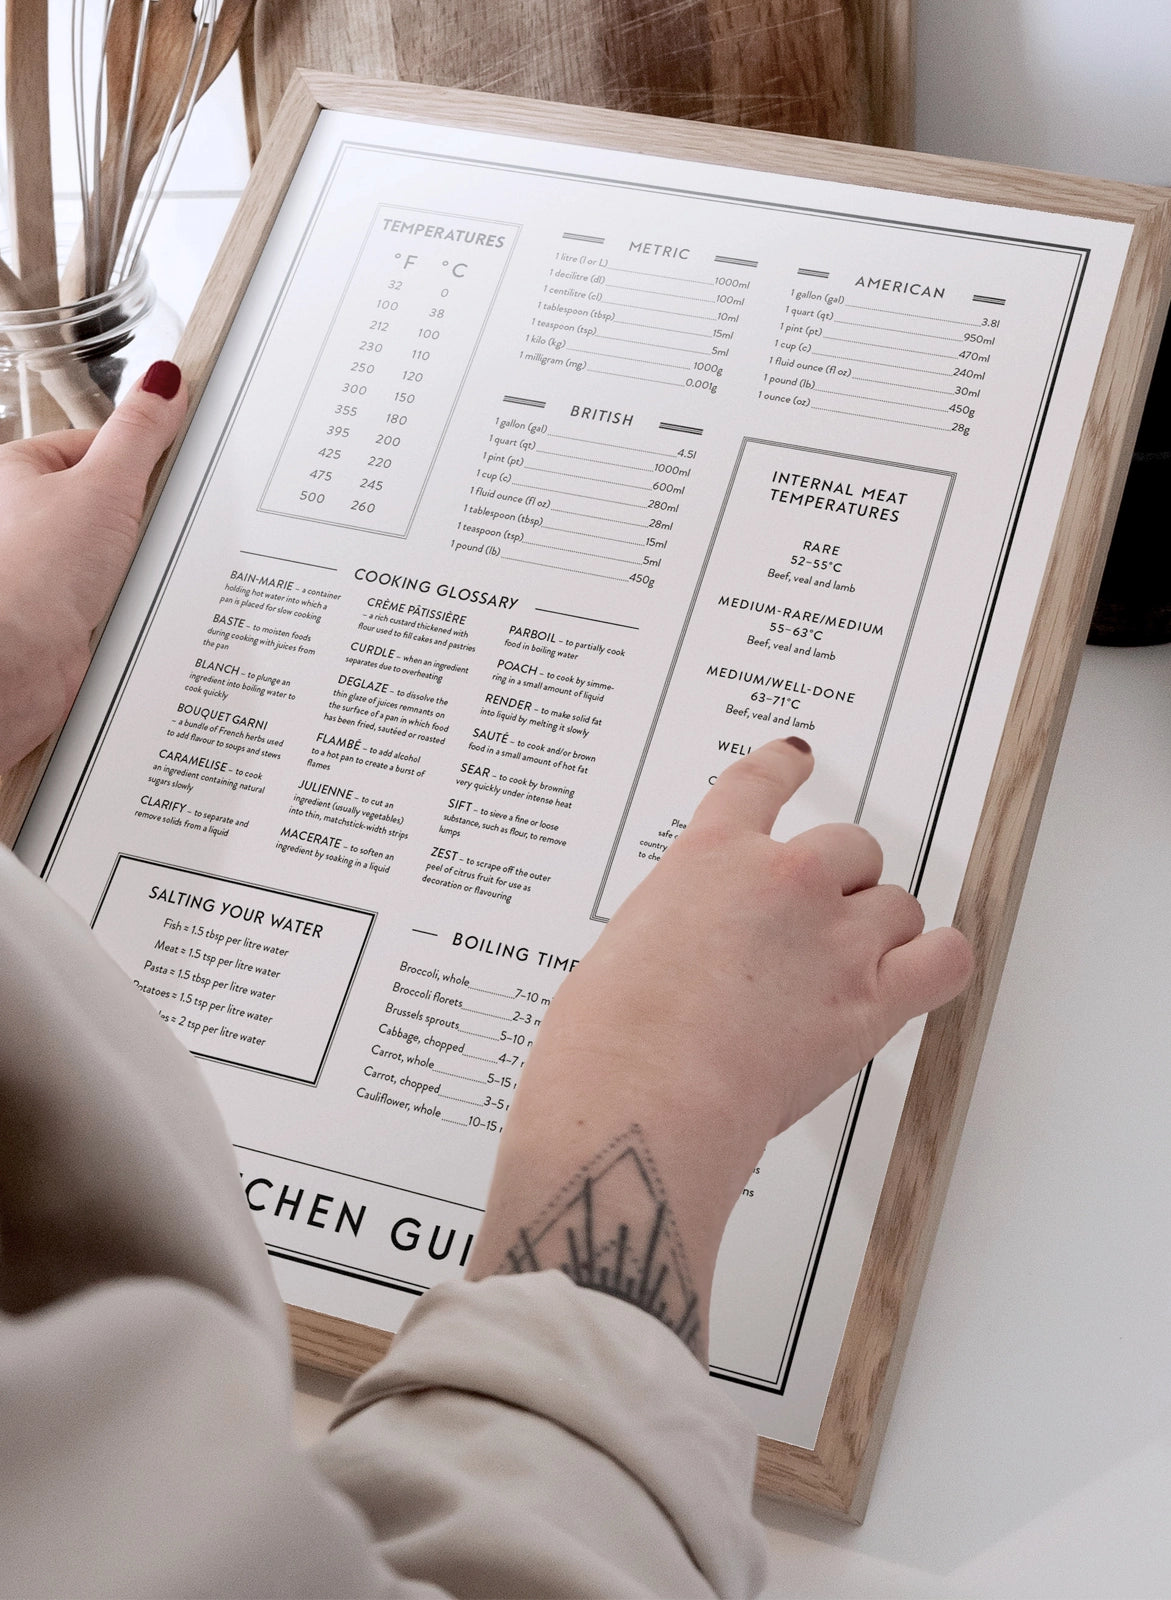 TEMPERATURES
°F °C
32 0
100 38
212 100
230 110
250 120
300 150
355 180
395 200
425 220
475 245
500 260
METRIC
1 litre (l or L) 1000ml
1 decilitre (dl) 100ml
1 centilitre (cl) 10ml
1 tablespoon (tbsp) 15ml
1 teaspoon (tsp) 5ml
1 kilo (kg) 1000g
1 milligram (mg) 0.001g
AMERICAN
1 gallon (gal) 3.8l
1 quart (qt) 950ml
1 pint (pt) 470ml
1 cup (c) 240ml
1 fluid ounce (fl oz) 30ml
1 pound (lb) 450g
1 ounce (oz) 28g
BRITISH
1 gallon (gal) 4.5l
1 quart (qt) 1000ml
1 pint (pt) 600ml
1 cup (c) 280ml
1 fluid ounce (fl oz) 28ml
1 tablespoon (tbsp) 15ml
1 teaspoon (tsp) 5ml
1 pound (lb) 450g
INTERNAL MEAT
TEMPERATURES
RARE
52–55°C
Beef, veal and lamb
MEDIUM-RARE/MEDIUM
55–63°C
Beef, veal and lamb
MEDIUM/WELL-DONE
63–71°C
Beef, veal and lamb
WELL
country
to che
COOKING GLOSSARY
BAIN-MARIE – a container
holding hot water into which a
pan is placed for slow cooking
BASTE – to moisten foods
during cooking with juices from
the pan
BLANCH – to plunge an
ingredient into boiling water to
cook quickly
BOUQUET GARNI
– a bundle of French herbs used
to add flavour to soups and stews
CARAMELISE – to cook
an ingredient containing natural
sugars slowly
CLARIFY – to separate and
remove solids from a liquid
CRÈME PÂTISSIÈRE
– a rich custard thickened with
flour used to fill cakes and pastries
CURDLE – when an ingredient
separates due to overheating
DEGLAZE – to dissolve the
thin glaze of juices remnants on
the surface of a pan in which food
has been fried, sautéed or roasted
FLAMBÉ – to add alcohol
to a hot pan to create a burst of
flames
JULIENNE – to cut an
ingredient (usually vegetables)
into thin, matchstick-width strips
MACERATE – to soften an
ingredient by soaking in a liquid
PARBOIL – to partially cook
food in boiling water
POACH – to cook by simme-
ring in a small amount of liquid
RENDER – to make solid fat
into liquid by melting it slowly
SAUTÉ – to cook and/or brown
food in a small amount of hot fat
SEAR – to cook by browning
very quickly under intense heat
SIFT – to sieve a fine or loose
substance, such as flour, to remove
lumps
ZEST – to scrape off the outer
peel of citrus fruit for use as
decoration or flavouring
SALTING YOUR WATER
Fish = 1.5 tbsp per litre water
Meat = 1.5 tsp per litre water
Pasta = 1.5 tbsp per litre water
Potatoes = 1.5 tsp per litre water
les = 2 tsp per litre water
BOILING TIME
Broccoli, whole 7–10 m
Broccoli florets 2–3 m
Brussels sprouts 5–10
Cabbage, chopped 4–7
Carrot, whole 5–15
Carrot, chopped 3–5
Cauliflower, whole 10–15
CHEN GUI